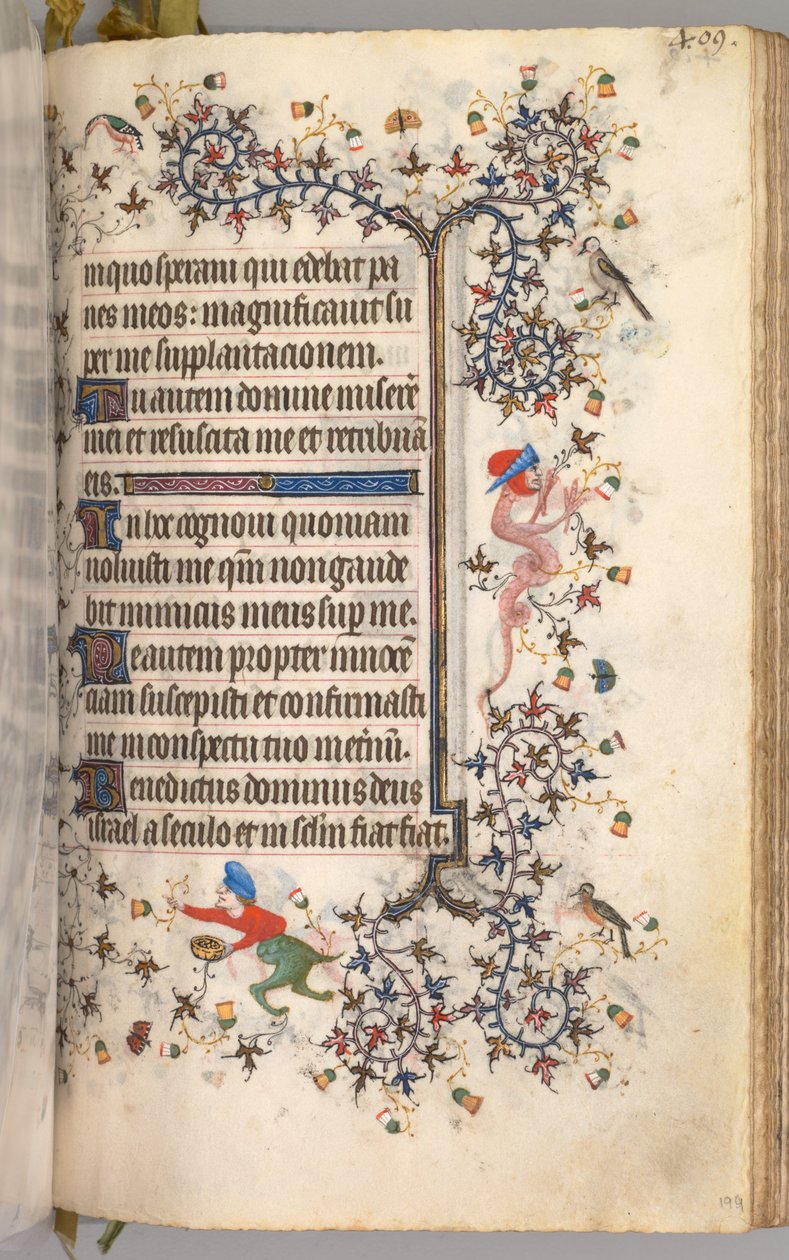 409.
in quo speraui qui edebat pa
nes meos: magnificauit su
per me supplantacionem.
Tu autem domine miserere
mei et resuscita me et retribuā
eis.
In hoc cognoui quoniam
uoluisti me qm̄ non gaude
bit inimicus meus sup me.
Me autem propter innocē
ciam suscepisti et confirmasti
me in conspectu tuo in et̄nū.
Benedictus dominus deus
israel a seculo et in sclm̄ fiat fiat.
199